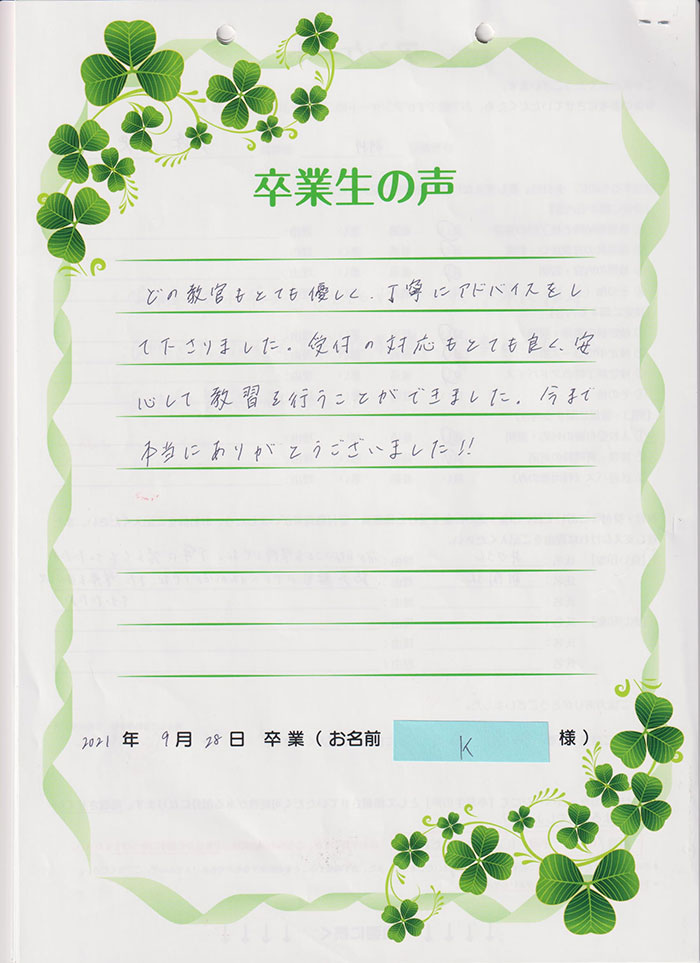 卒業生の声
どの教官もとても優しく、丁寧にアドバイスをし
て下さりました。受付の対応もとても良く、安
心して教習を行うことができました。今まで
本当にありがとうございました!!
2021年 9月 28日 卒業(お名前 K 様)